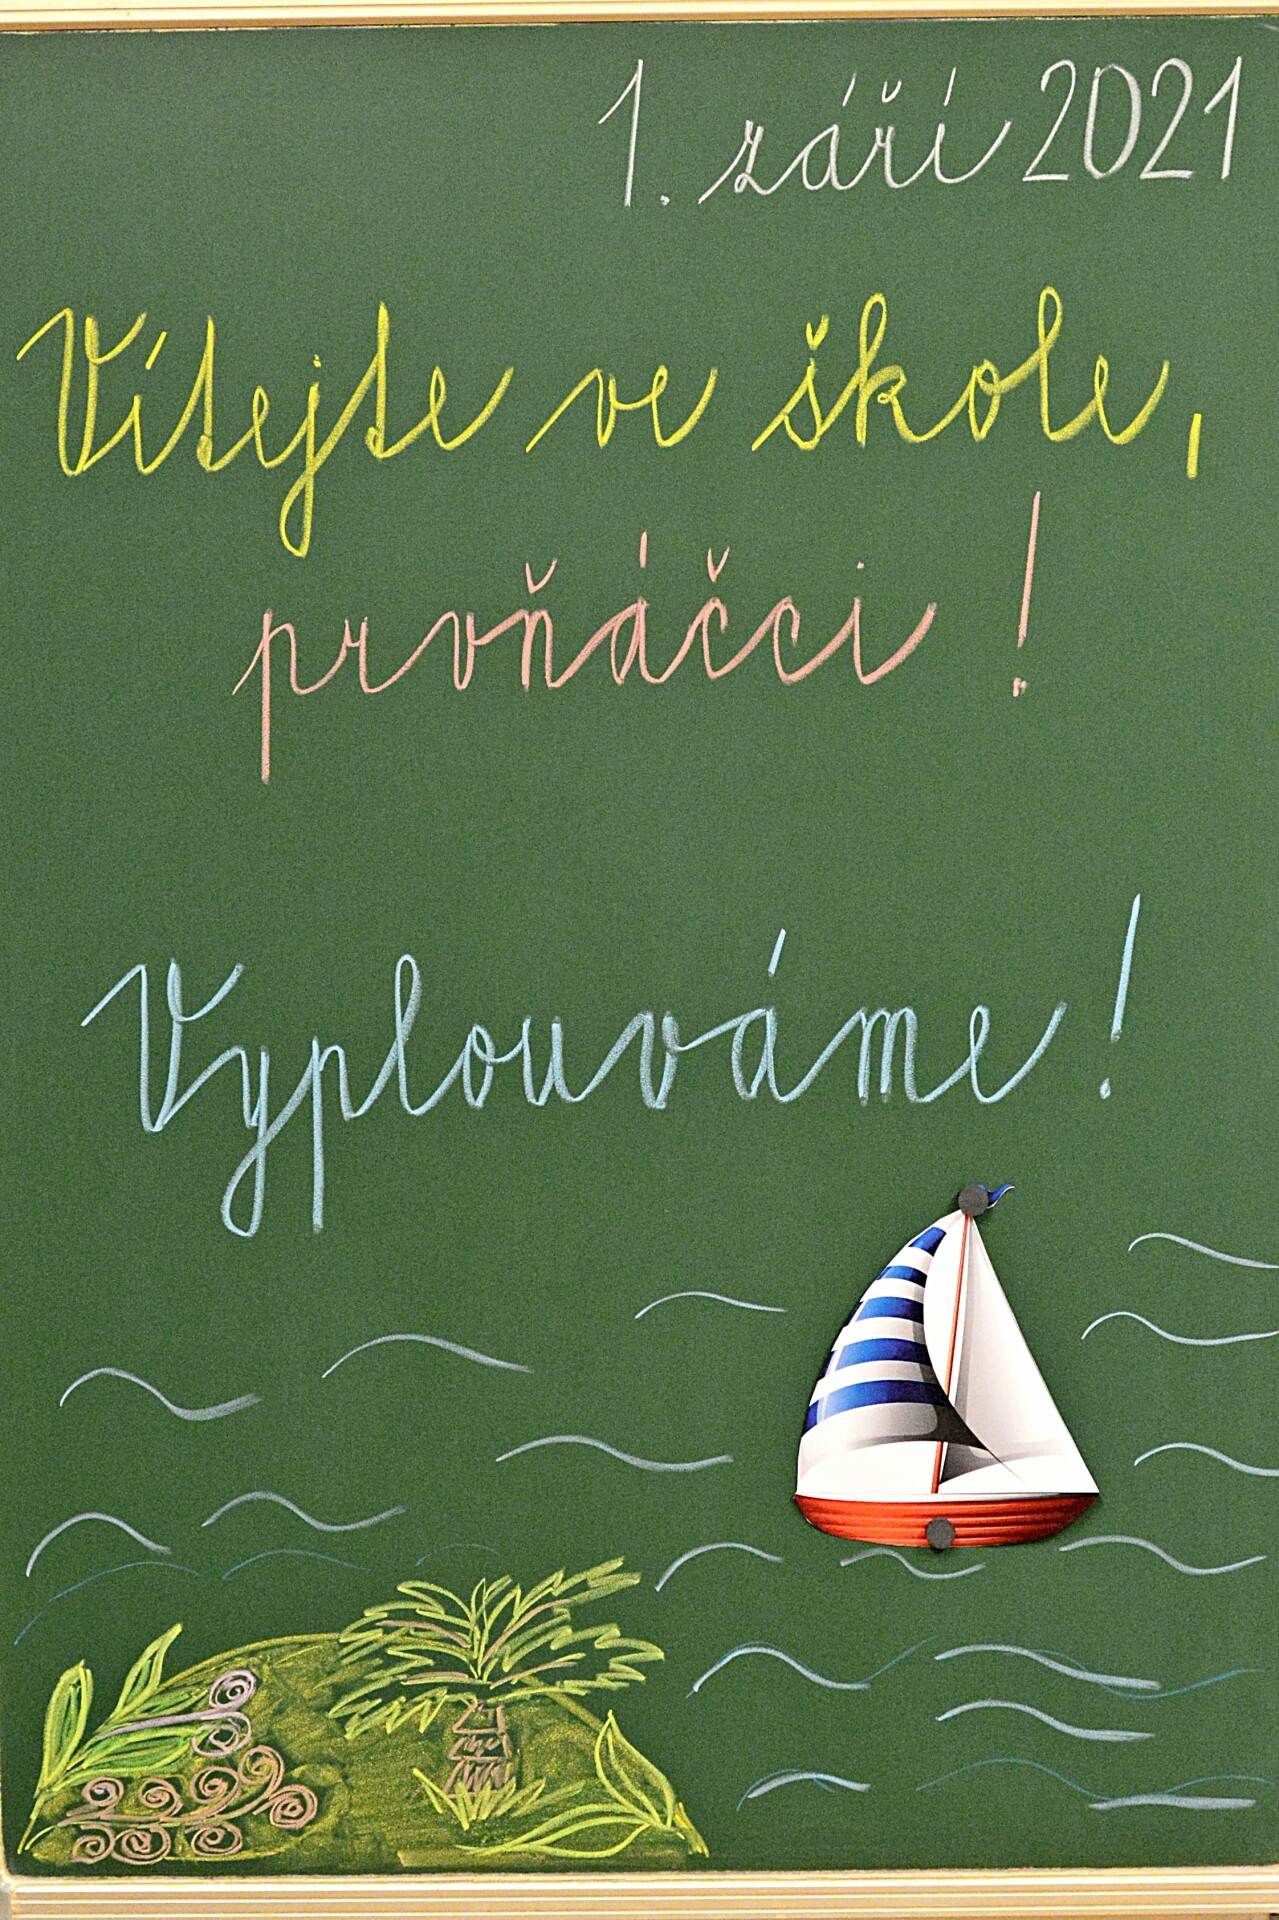 1. září 2021
Vítejte ve škole,
prvňáčci!
Vyplouváme!